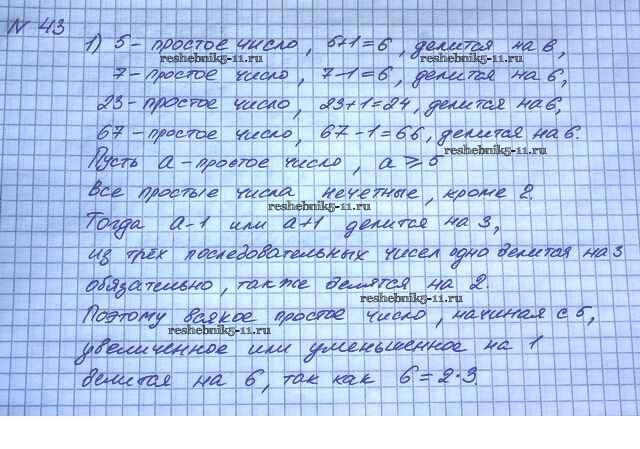 № 43
1) 5 - простое число, 5+1=6, делится на 6,
reshebnik5-11.ru
7 - простое число, 7-1=6, делится на 6,
reshebnik5-11.ru
23 - простое число, 23+1=24, делится на 6,
reshebnik5-11.ru
67 - простое число, 67-1=66, делится на 6.
reshebnik5-11.ru
Пусть а - простое число, а ⩾ 5
Все простые числа нечетные, кроме 2.
reshebnik5-11.ru
Тогда а-1 или а+1 делится на 3,
из трёх последовательных чисел одно делится на 3
обязательно, также делятся на 2.
reshebnik5-11.ru
Поэтому всякое простое число, начиная с 5,
reshebnik5-11.ru
увеличенное или уменьшенное на 1
делится на 6, так как 6=2·3.